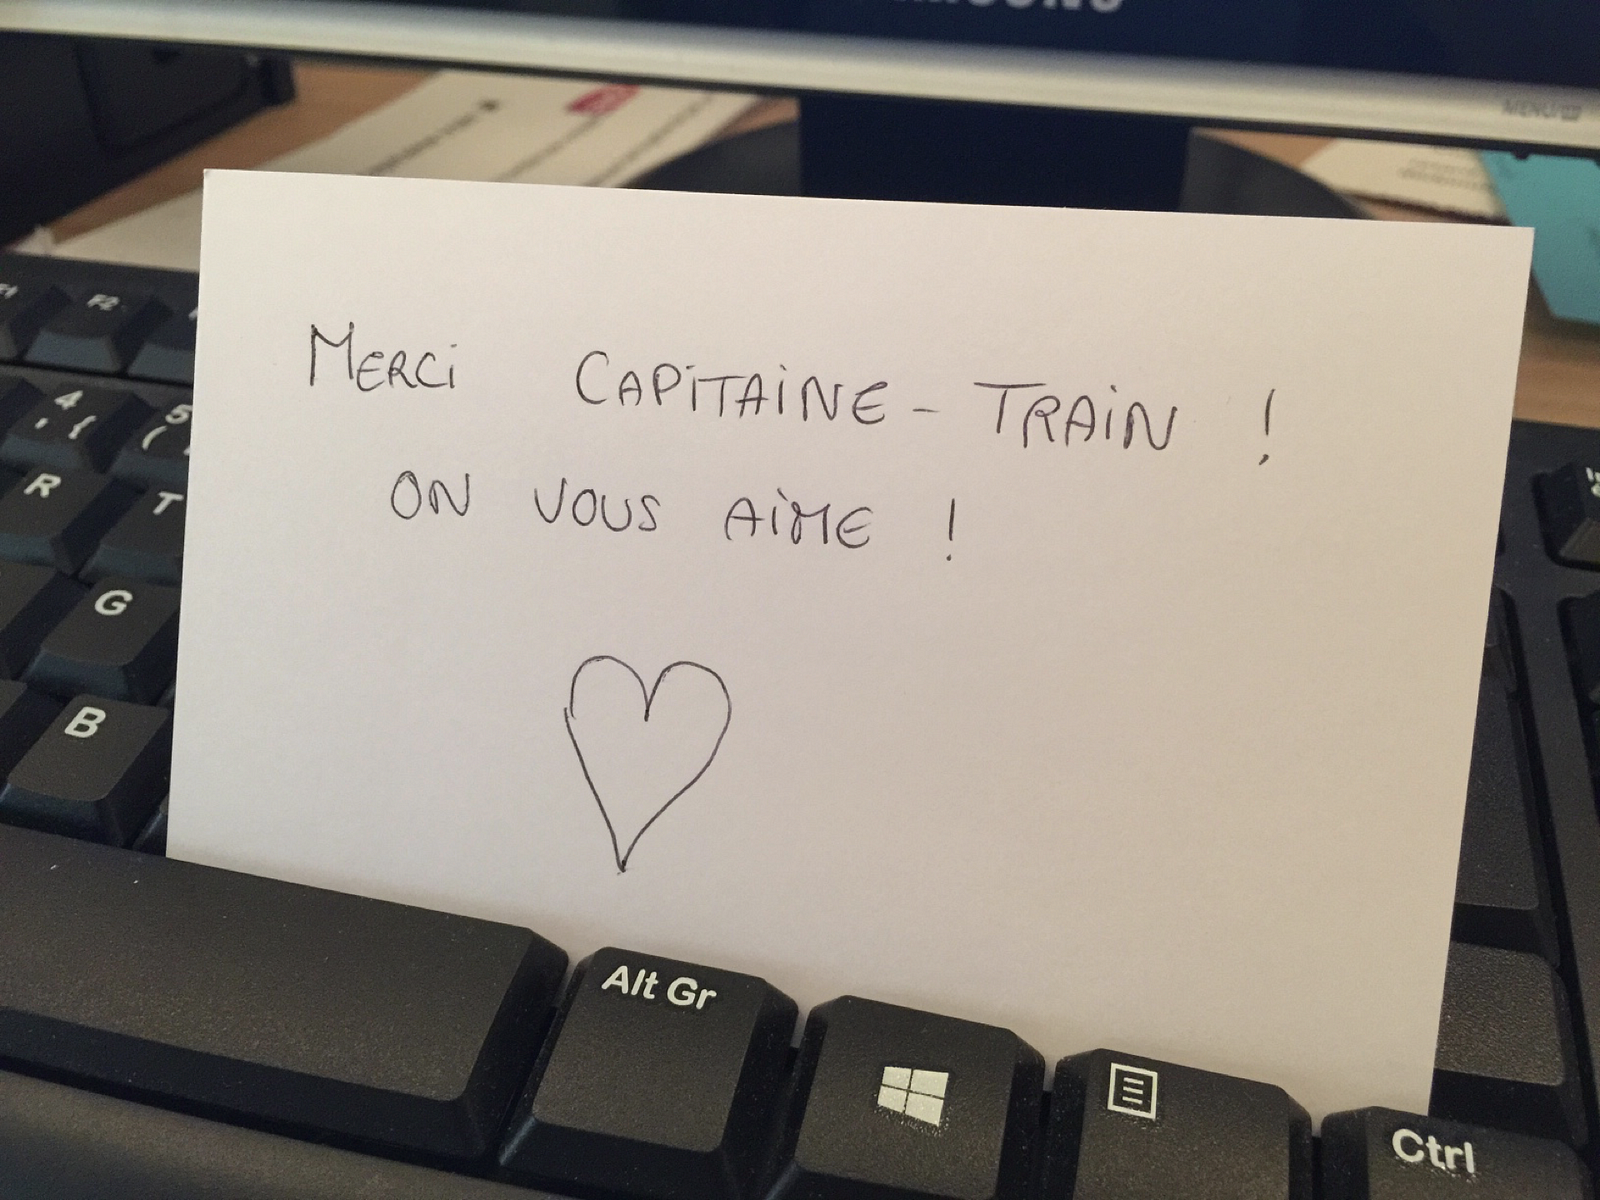 MENU
F1
F2
4
' {
5
(
R
T
G
B
MERCi CAPiTAiNE - TRAiN !
ON VOUS AiME !
Alt Gr
Ctrl